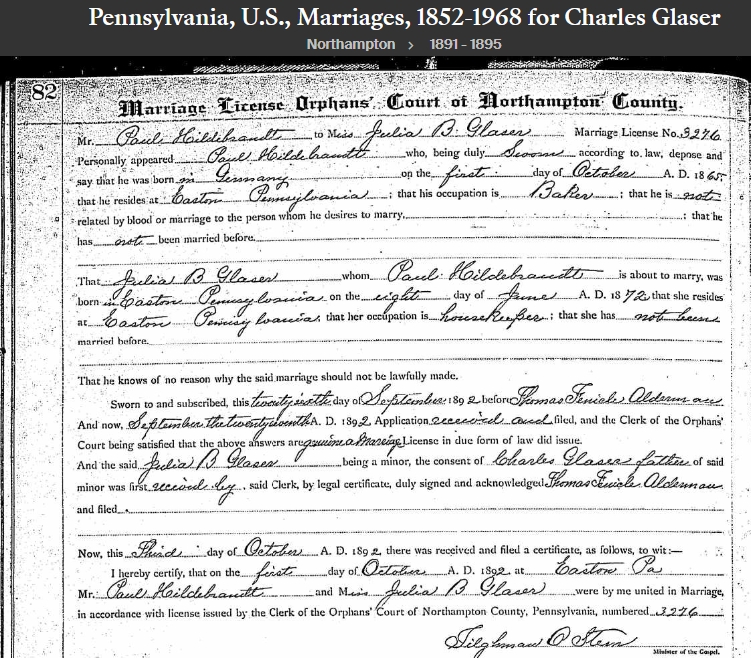 Pennsylvania, U.S., Marriages, 1852-1968 for Charles Glaser
Northampton > 1891 - 1895
82
Marriage License Orphans' Court of Northampton County.
Mr. Paul Hildebrandt to Miss Julia B. Glaser Marriage License No. 3276
Personally appeared Paul Hildebrandt who, being duly Sworn according to law, depose and
say that he was born in Germany on the first day of October A. D. 1865
that he resides at Easton Pennsylvania ; that his occupation is Baker ; that he is not
related by blood or marriage to the person whom he desires to marry, ; that he
has not been married before.
That Julia B Glaser whom Paul Hildebrandt is about to marry, was
born in Easton Pennsylvania on the eight day of June A. D. 1872, that she resides
at Easton Pennsylvania, that her occupation is housekeeper ; that she has not been
married before.
That he knows of no reason why the said marriage should not be lawfully made.
Sworn to and subscribed, this twenty sixth day of September 1892 before Thomas Alderman
And now, September the twenty seventh A. D. 1892, Application received and filed, and the Clerk of the Orphans'
Court being satisfied that the above answers are genuine a Marriage License in due form of law did issue.
And the said Julia B Glaser being a minor, the consent of Charles Glaser father of said
minor was first received by, said Clerk, by legal certificate, duly signed and acknowledged Thomas Alderman
and filed.
Now, this Third day of October A. D. 1892, there was received and filed a certificate, as follows, to wit:—
I hereby certify, that on the first day of October A. D. 1892 at Easton Pa
Mr. Paul Hildebrandt and Miss Julia B Glaser were by me united in Marriage,
in accordance with license issued by the Clerk of the Orphans' Court of Northampton County, Pennsylvania, numbered 3276
Tilghman O Stem
Minister of the Gospel.